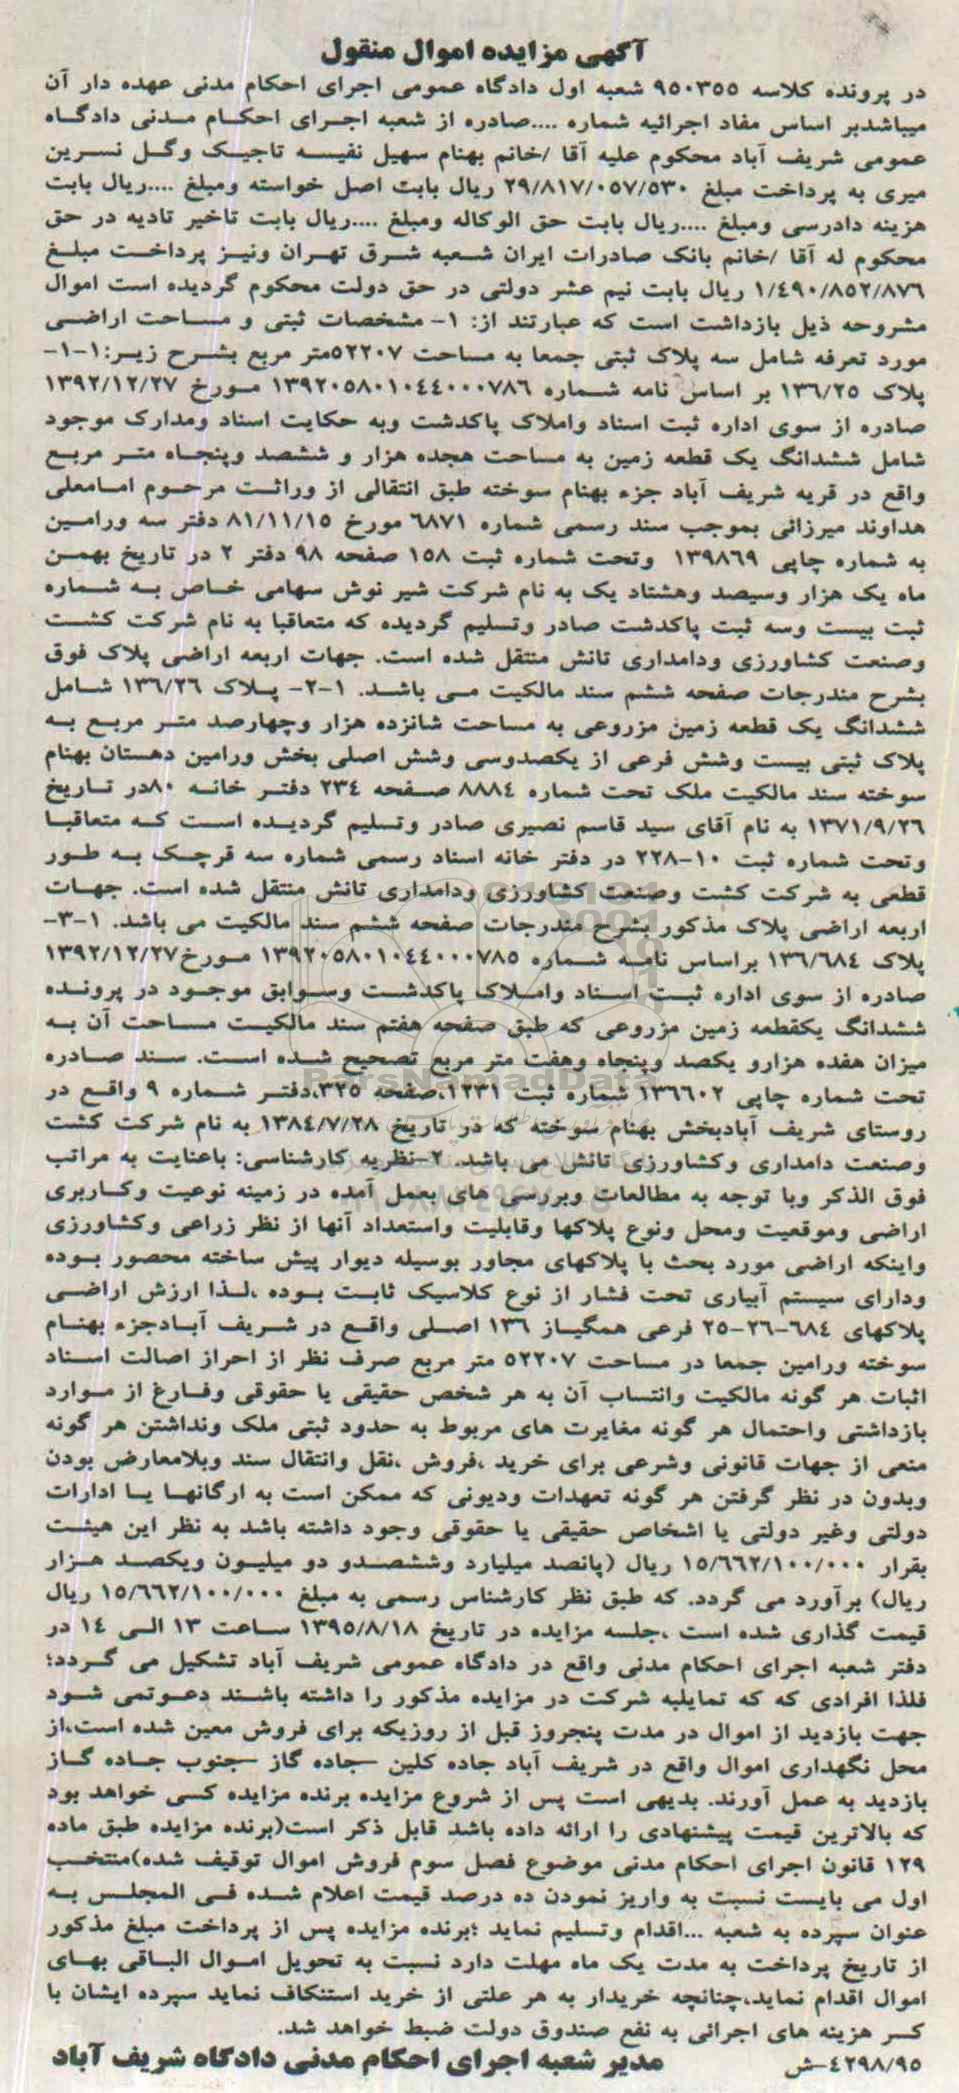 آگهی مزایده اموال منقول
در پرونده کلاسه ۹۵۰۳۵۵ شعبه اول دادگاه عمومی اجرای احکام مدنی عهده دار آن
میباشدبر اساس مفاد اجرائیه شماره ....صادره از شعبه اجرای احکام مدنی دادگاه
عمومی شریف آباد محکوم علیه آقا /خانم بهنام سهیل نفیسه تاجیک وگل نسرین
میری به پرداخت مبلغ ۲۹/۸۱۷/۰۵۷/۵۳۰ ریال بابت اصل خواسته ومبلغ ....ریال بابت
هزینه دادرسی ومبلغ ....ریال بابت حق الوکاله ومبلغ ....ریال بابت تاخیر تادیه در حق
محکوم له آقا /خانم بانک صادرات ایران شعبه شرق تهران ونیز پرداخت مبلغ
۱/۴۹۰/۸۵۲/۸۷۶ ریال بابت نیم عشر دولتی در حق دولت محکوم گردیده است اموال
مشروحه ذیل بازداشت است که عبارتند از: ۱- مشخصات ثبتی و مساحت اراضی
مورد تعرفه شامل سه پلاک ثبتی جمعا به مساحت ۵۲۲۰۷متر مربع بشرح زیر:۱-۱-
پلاک ۱۳۶/۲۵ بر اساس نامه شماره ۱۳۹۲۰۵۸۰۱۰۴۴۰۰۰۷۸۶ مورخ ۱۳۹۲/۱۲/۲۷
صادره از سوی اداره ثبت اسناد واملاک پاکدشت وبه حکایت اسناد ومدارک موجود
شامل ششدانگ یک قطعه زمین به مساحت هجده هزار و ششصد وپنجاه متر مربع
واقع در قریه شریف آباد جزء بهنام سوخته طبق انتقالی از وراثت مرحوم امامعلی
هداوند میرزائی بموجب سند رسمی شماره ۶۸۷۱ مورخ ۸۱/۱۱/۱۵ دفتر سه ورامین
به شماره چاپی ۱۳۹۸۶۹ وتحت شماره ثبت ۱۵۸ صفحه ۹۸ دفتر ۲ در تاریخ بهمن
ماه یک هزار وسیصد وهشتاد یک به نام شرکت شیر نوش سهامی خاص به شماره
ثبت بیست وسه ثبت پاکدشت صادر وتسلیم گردیده که متعاقبا به نام شرکت کشت
وصنعت کشاورزی ودامداری تانش منتقل شده است. جهات اربعه اراضی پلاک فوق
بشرح مندرجات صفحه ششم سند مالکیت می باشد. ۱-۲- پلاک ۱۳۶/۲۶ شامل
ششدانگ یک قطعه زمین مزروعی به مساحت شانزده هزار وچهارصد متر مربع به
پلاک ثبتی بیست وشش فرعی از یکصدوسی وشش اصلی بخش ورامین دهستان بهنام
سوخته سند مالکیت ملک تحت شماره ۸۸۸۴ صفحه ۲۳۴ دفتر خانه ۸۰در تاریخ
۱۳۷۱/۹/۲۶ به نام آقای سید قاسم نصیری صادر وتسلیم گردیده است که متعاقبا
وتحت شماره ثبت ۱۰-۲۲۸ در دفتر خانه اسناد رسمی شماره سه قرچک به طور
قطعی به شرکت کشت وصنعت کشاورزی ودامداری تانش منتقل شده است. جهات
اربعه اراضی پلاک مذکور بشرح مندرجات صفحه ششم سند مالکیت می باشد. ۱-۳-
پلاک ۱۳۶/۶۸۴ براساس نامه شماره ۱۳۹۲۰۵۸۰۱۰۴۴۰۰۰۷۸۵ مورخ۱۳۹۲/۱۲/۲۷
صادره از سوی اداره ثبت اسناد واملاک پاکدشت وسوابق موجود در پرونده
ششدانگ یکقطعه زمین مزروعی که طبق صفحه هفتم سند مالکیت مساحت آن به
میزان هفده هزارو یکصد وپنجاه وهفت متر مربع تصحیح شده است. سند صادره
تحت شماره چاپی ۱۳۶۶۰۲ شماره ثبت ۱۲۳۱،صفحه ۳۲۵،دفتر شماره ۹ واقع در
روستای شریف آبادبخش بهنام سوخته که در تاریخ ۱۳۸۴/۷/۲۸ به نام شرکت کشت
وصنعت دامداری وکشاورزی تانش می باشد. ۲-نظریه کارشناسی: باعنایت به مراتب
فوق الذکر وبا توجه به مطالعات وبررسی های بعمل آمده در زمینه نوعیت وکاربری
اراضی وموقعیت ومحل ونوع پلاکها وقابلیت واستعداد آنها از نظر زراعی وکشاورزی
واینکه اراضی مورد بحث با پلاکهای مجاور بوسیله دیوار پیش ساخته محصور بوده
ودارای سیستم آبیاری تحت فشار از نوع کلاسیک ثابت بوده ،لذا ارزش اراضی
پلاکهای ۶۸۴-۲۶-۲۵ فرعی همگیاز ۱۳۶ اصلی واقع در شریف آبادجزء بهنام
سوخته ورامین جمعا در مساحت ۵۲۲۰۷ متر مربع صرف نظر از احراز اصالت اسناد
اثبات هر گونه مالکیت وانتساب آن به هر شخص حقیقی یا حقوقی وفارغ از موارد
بازداشتی واحتمال هر گونه مغایرت های مربوط به حدود ثبتی ملک ونداشتن هر گونه
منعی از جهات قانونی وشرعی برای خرید ،فروش ،نقل وانتقال سند وبلامعارض بودن
وبدون در نظر گرفتن هر گونه تعهدات ودیونی که ممکن است به ارگانها یا ادارات
دولتی وغیر دولتی یا اشخاص حقیقی یا حقوقی وجود داشته باشد به نظر این هیئت
بقرار ۱۵/۶۶۲/۱۰۰/۰۰۰ ریال (پانصد میلیارد وششصدو دو میلیون ویکصد هزار
ریال) برآورد می گردد. که طبق نظر کارشناس رسمی به مبلغ ۱۵/۶۶۲/۱۰۰/۰۰۰ ریال
قیمت گذاری شده است ،جلسه مزایده در تاریخ ۱۳۹۵/۸/۱۸ ساعت ۱۳ الی ۱۴ در
دفتر شعبه اجرای احکام مدنی واقع در دادگاه عمومی شریف آباد تشکیل می گردد؛
فلذا افرادی که که تمایلبه شرکت در مزایده مذکور را داشته باشند دعوتمی شود
جهت بازدید از اموال در مدت پنجروز قبل از روزیکه برای فروش معین شده است،از
محل نگهداری اموال واقع در شریف آباد جاده کلین -جاده گاز -جنوب جاده گاز
بازدید به عمل آورند. بدیهی است پس از شروع مزایده برنده مزایده کسی خواهد بود
که بالاترین قیمت پیشنهادی را ارائه داده باشد قابل ذکر است(برنده مزایده طبق ماده
۱۲۹ قانون اجرای احکام مدنی موضوع فصل سوم فروش اموال توقیف شده)منتخب
اول می بایست نسبت به واریز نمودن ده درصد قیمت اعلام شده فی المجلس به
عنوان سپرده به شعبه ...اقدام وتسلیم نماید ؛برنده مزایده پس از پرداخت مبلغ مذکور
از تاریخ پرداخت به مدت یک ماه مهلت دارد نسبت به تحویل اموال الباقی بهای
اموال اقدام نماید،چنانچه خریدار به هر علتی از خرید استنکاف نماید سپرده ایشان با
کسر هزینه های اجرائی به نفع صندوق دولت ضبط خواهد شد.
۴۲۹۸/۹۵-ش مدیر شعبه اجرای احکام مدنی دادگاه شریف آباد
ParsNamadData